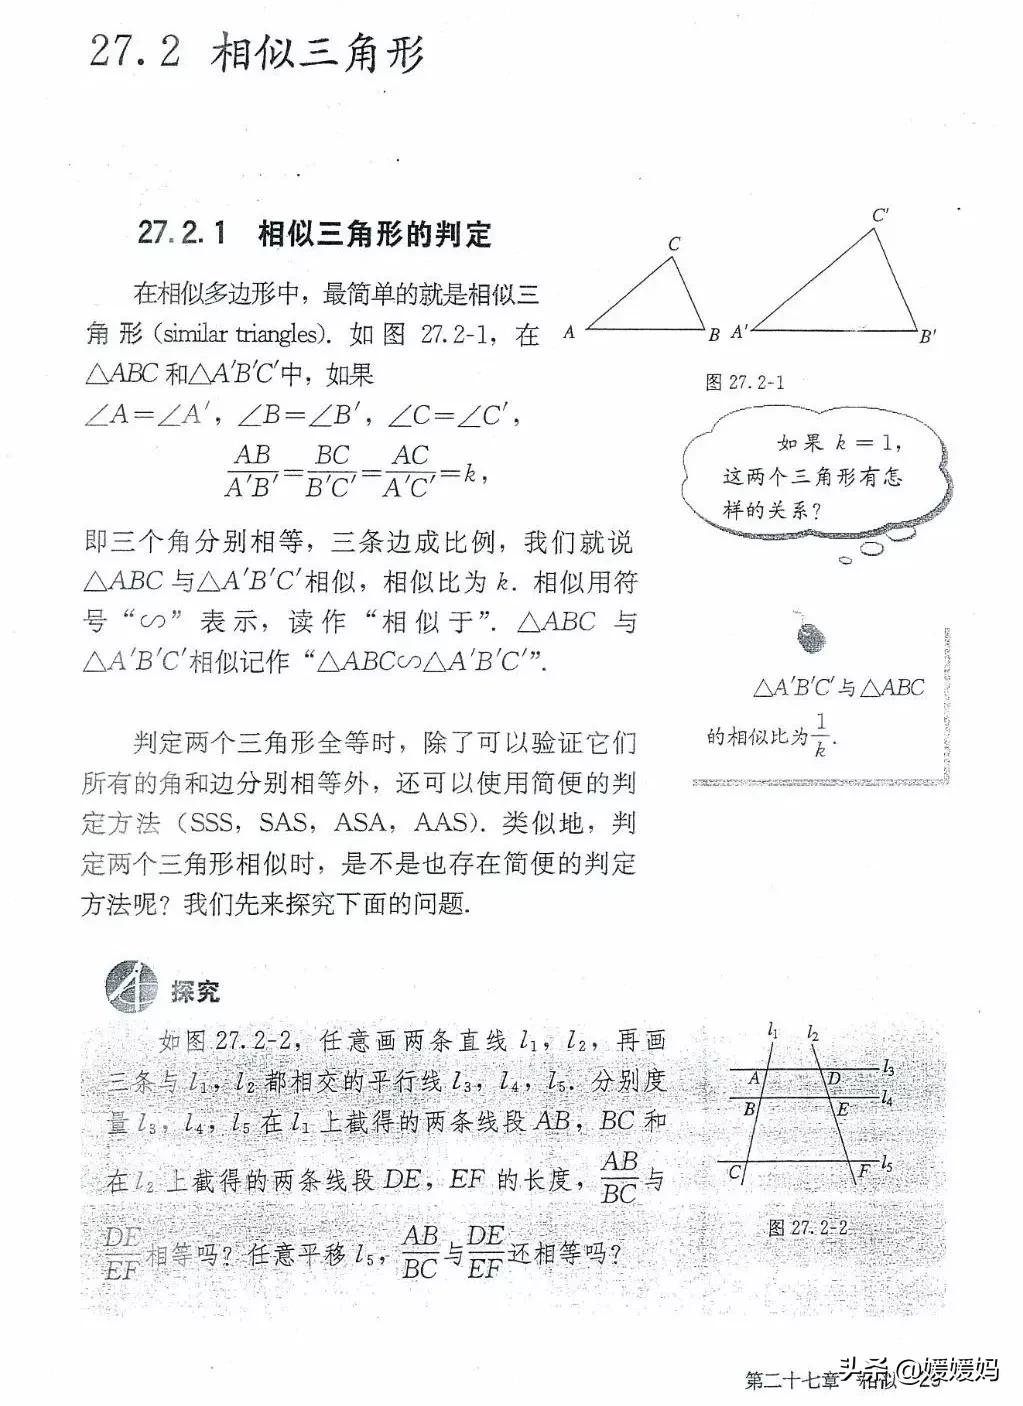 27.2 相似三角形
27.2.1 相似三角形的判定
在相似多边形中，最简单的就是相似三
角形(similar triangles). 如图 27.2-1，在
△ABC和△A′B′C′中，如果
∠A=∠A′，∠B=∠B′，∠C=∠C′，
AB/A′B′=BC/B′C′=AC/A′C′=k，
即三个角分别相等，三条边成比例，我们就说
△ABC与△A′B′C′相似，相似比为k. 相似用符
号“∽”表示，读作“相似于”. △ABC与
△A′B′C′相似记作“△ABC∽△A′B′C′”.
C
A
B
C′
A′
B′
图 27.2-1
如果 k=1，
这两个三角形有怎
样的关系？
△A′B′C′与△ABC
的相似比为1/k.
判定两个三角形全等时，除了可以验证它们
所有的角和边分别相等外，还可以使用简便的判
定方法（SSS，SAS，ASA，AAS）. 类似地，判
定两个三角形相似时，是不是也存在简便的判定
方法呢？我们先来探究下面的问题.
探究
如图27.2-2，任意画两条直线l₁，l₂，再画
三条与l₁，l₂都相交的平行线l₃，l₄，l₅. 分别度
量l₃，l₄，l₅在l₁上截得的两条线段AB，BC和
在l₂上截得的两条线段DE，EF的长度，AB/BC与
DE/EF相等吗？任意平移l₅，AB/BC与DE/EF还相等吗？
l₁
l₂
l₃
A
D
l₄
B
E
l₅
C
F
图 27.2-2
第二十七章 相似
头条 @媛媛妈